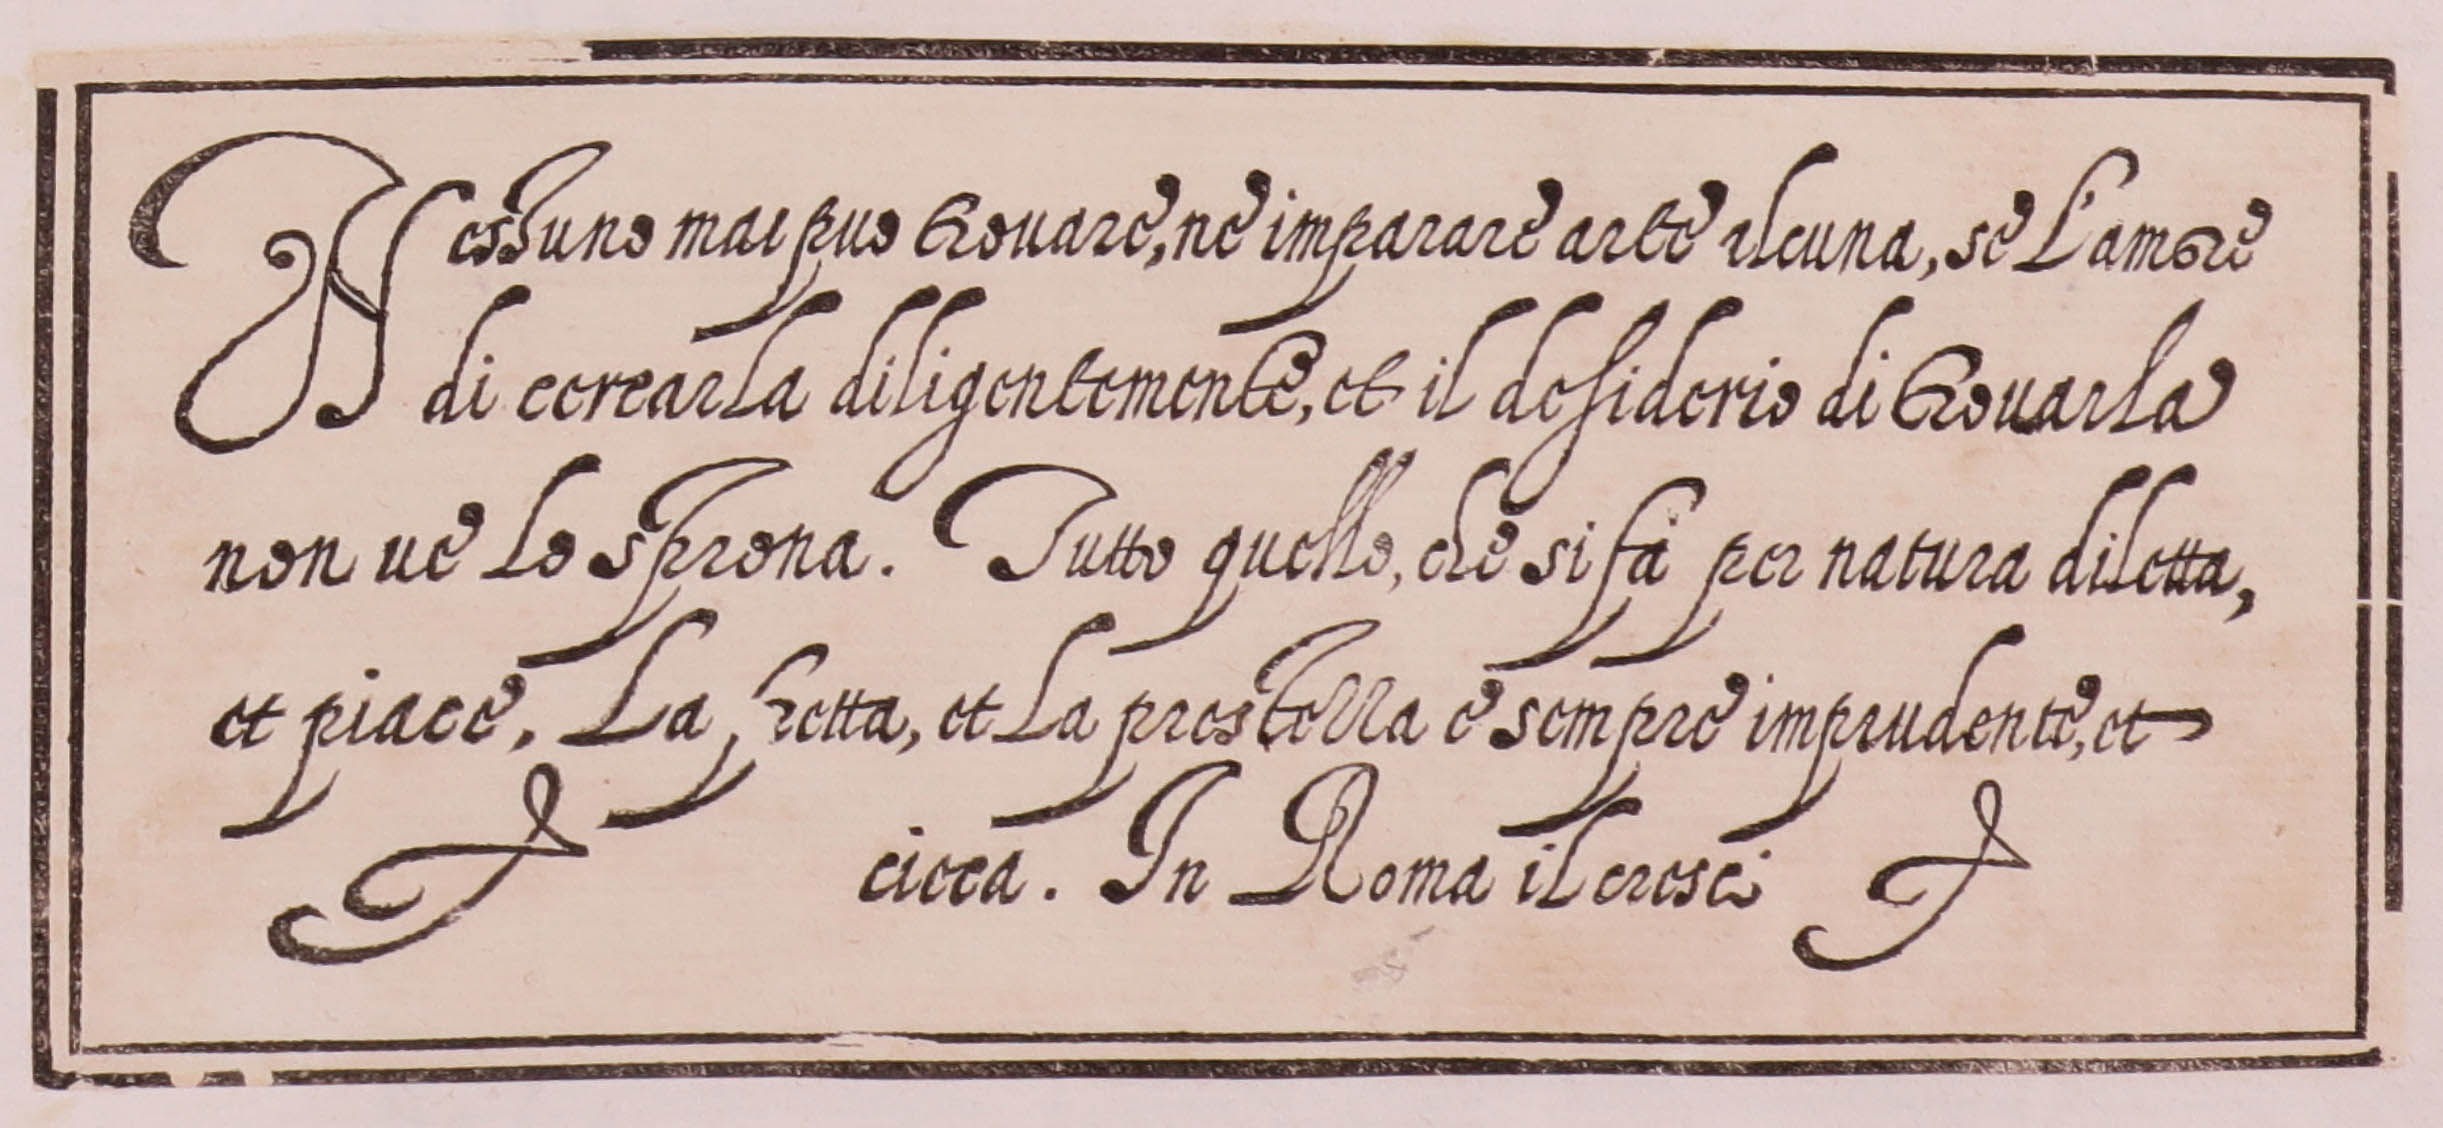 Nessuno mai puo trouare, ne imparare arte alcuna, se l'amore
di cercarla diligentemente, et il desiderio di trouarla
non ve lo sprona. Tutto quello, che si fà per natura diletta,
et piace. La fretta, et la prestezza è sempre imprudente, et
cieca. In Roma il cresci